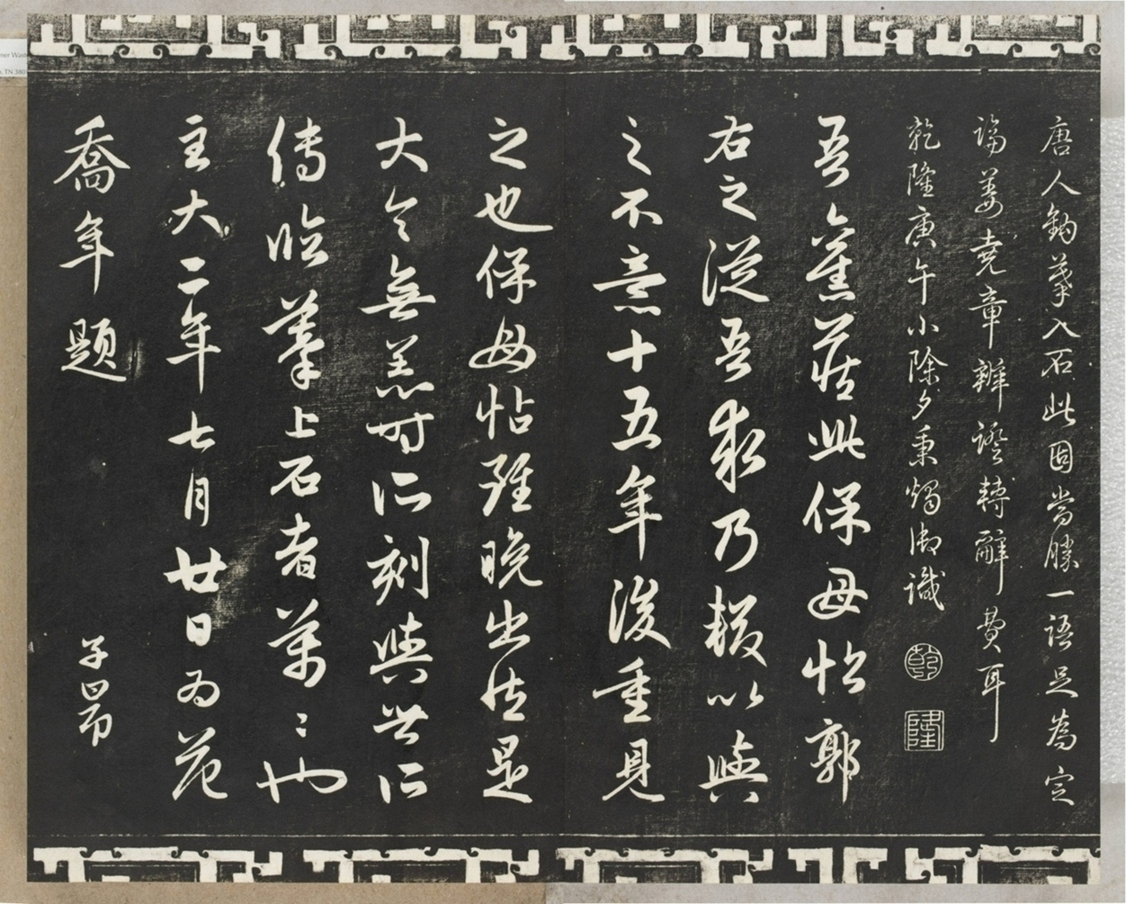 唐人鈎摹入石此固當勝一語足為定
論姜堯章辨證轉辭費耳
乾隆庚午小除夕秉燭御識
乾
隆
吾舊藏此保母帖郭
右之從吾求乃輟以與
之不意十五年後重見
之也保母帖雖晚出然是
大令無恙時所刻與世所
傳臨摹上石者萬〻也
至大二年七月廿日為范
喬年題 子昂